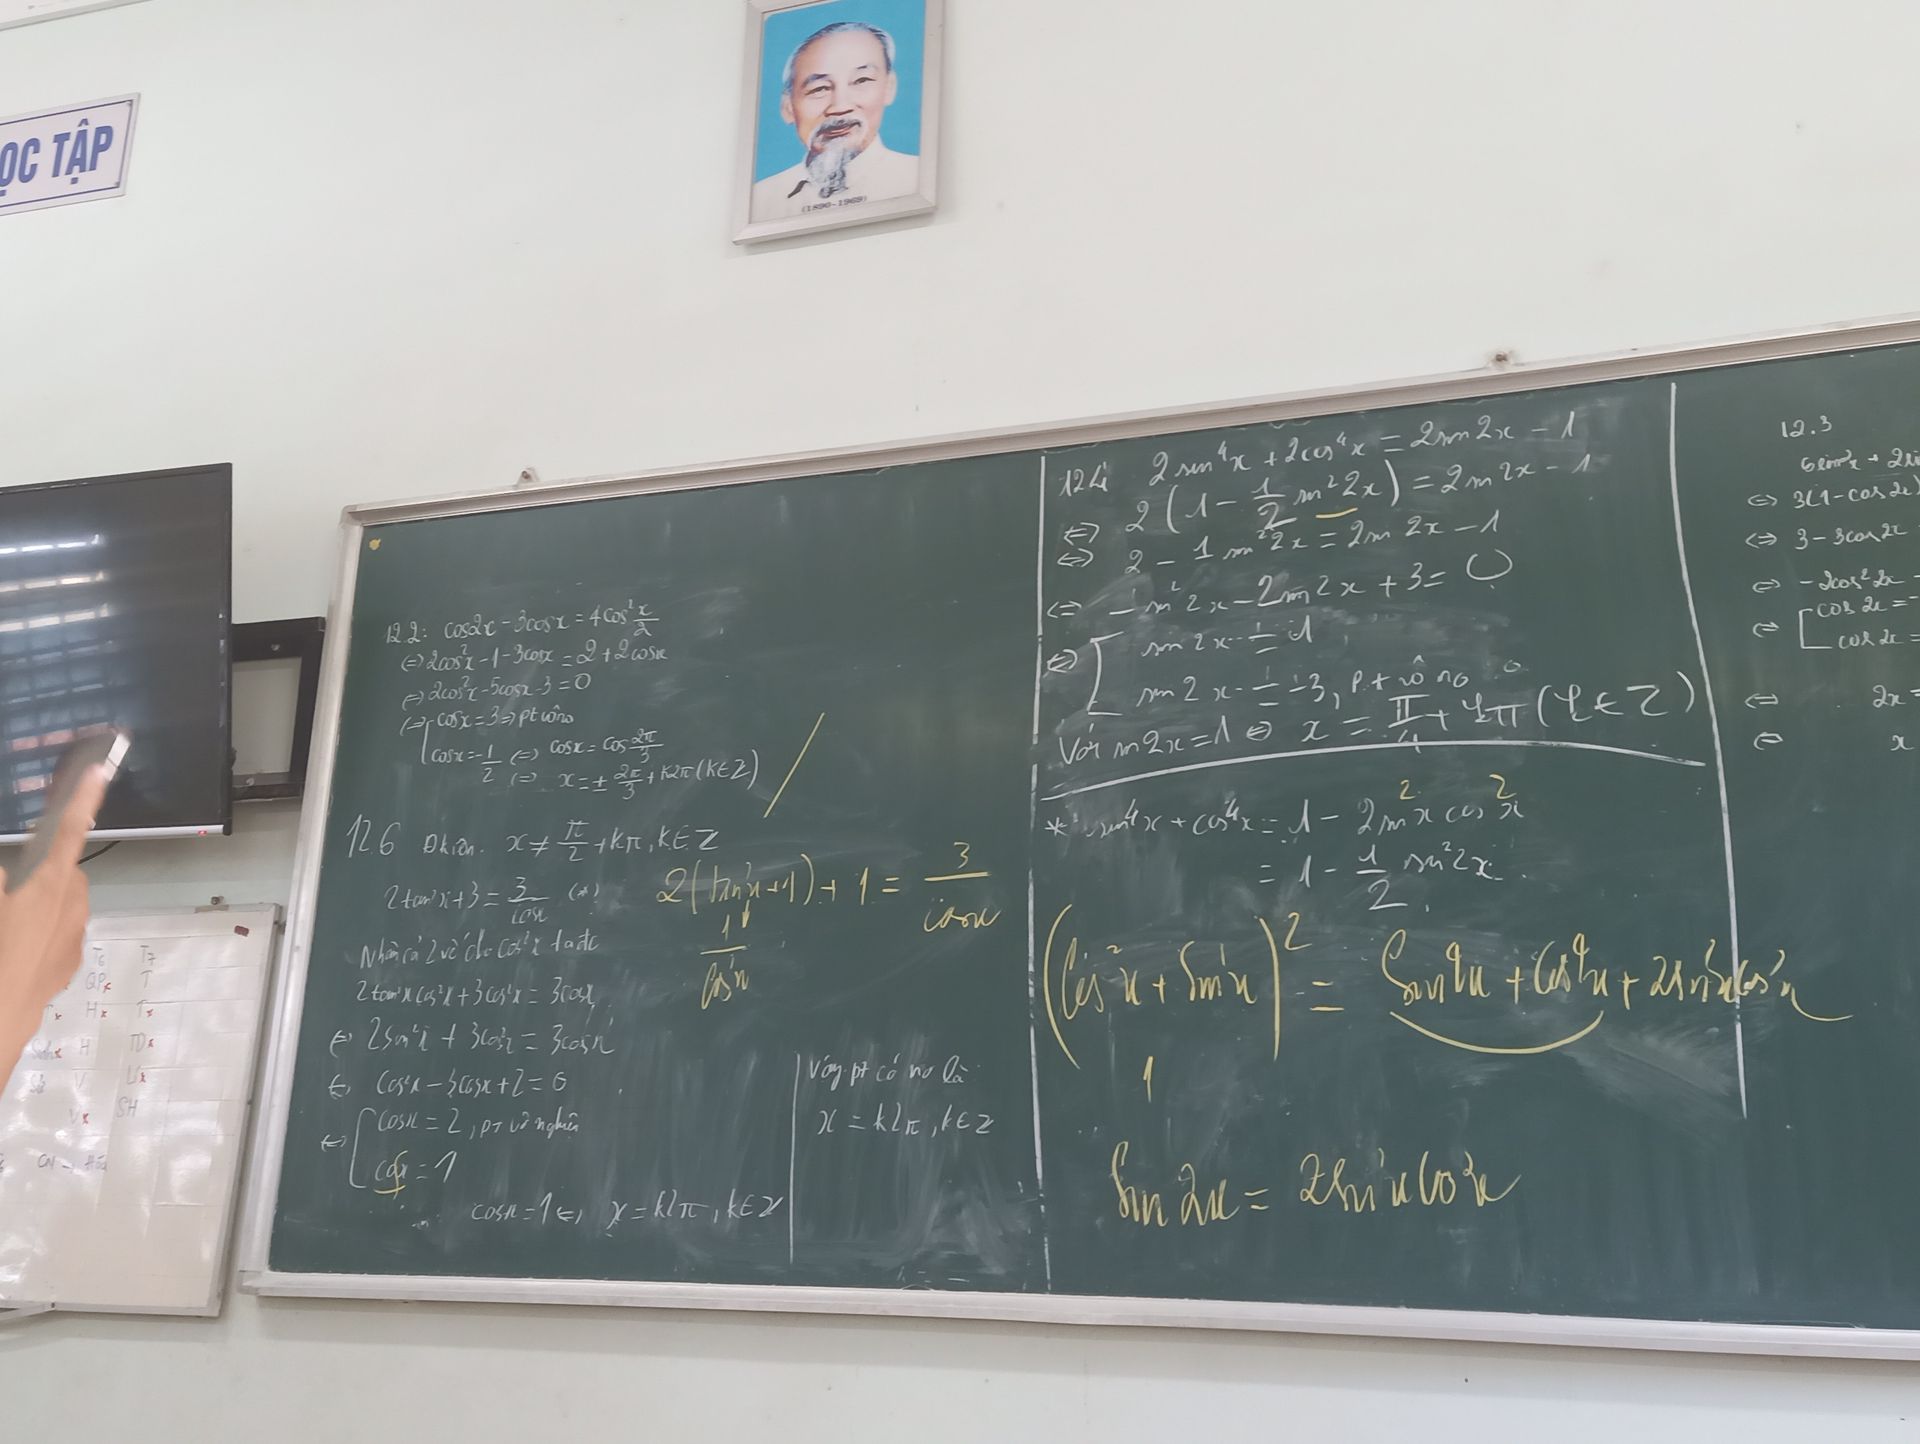 ỌC TẬP
(1890-1969)
12.2: cos2x - 3cosx = 4cos² x/2
⇔ 2cos²x - 1 - 3cosx = 2 + 2cosx
⇔ 2cos²x - 5cosx - 3 = 0
⇔ [ cosx = 3 ⇒ pt vô no
cosx = -1/2 ⇔ cosx = cos 2π/3
⇔ x = ± 2π/3 + k2π (k∈Z)
12.6 Đkiện. x ≠ π/2 + kπ, k∈Z
2tan²x + 3 = 3/cosx (*)
Nhân cả 2 vế cho cos²x ta đc
2tan²x cos²x + 3cos²x = 3cosx
⇔ 2sin²x + 3cos²x = 3cosx
⇔ cos²x - 3cosx + 2 = 0
⇔ [ cosx = 2, pt vô nghiệm
cosx = 1
cosx = 1 ⇔ x = k2π, k∈Z
2(tan²x + 1) + 1 = 3/cosx
1/cos²x
Vậy pt có no là:
x = k2π, k∈Z
12.4 2sin⁴x + 2cos⁴x = 2sin2x - 1
⇔ 2(1 - 1/2 sin²2x) = 2sin2x - 1
⇔ 2 - 1sin²2x = 2sin2x - 1
⇔ -sin²2x - 2sin2x + 3 = 0
⇔ [ sin2x = 1
sin2x = -3, pt vô no
Với sin2x = 1 ⇔ x = π/4 + kπ (k∈Z)
* sin⁴x + cos⁴x = 1 - 2sin²x cos²x
= 1 - 1/2 sin²2x.
(cos²x + sin²x)² = sin⁴x + cos⁴x + 2sin²xcos²x
1
sin2x = 2sin²xcos²x
12.3
⇔ 3(1 - cos2x)
⇔ 3 - 3cos2x
⇔ -2cos²2x -
⇔ [ cos2x = -
cos2x =
⇔ 2x =
⇔ x
T6 T7
QP× T
H× T×
H TD×
V Lí×
V× SH
CN → Hóa